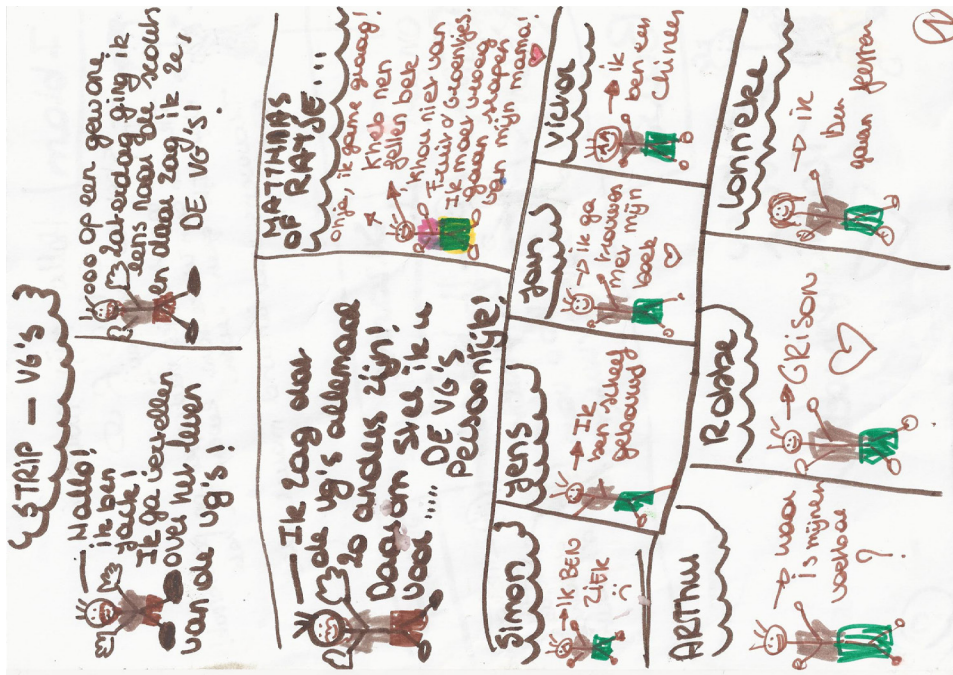 STRIP — VG's
Hallo!
ik ben
Jack!
Ik ga vertellen
over het leven
van de vg's!
Yooo op een gewone
zaterdag ging ik
eens naar de scouts
en daar zag ik ze,
DE VG's!
!
Ik zag dat
de vg's allemaal
zo anders zijn!
Daarom stel ik u
voor.... DE VG's
Persoonlijk!
MATTHIAS
OF
onja, ik game graag!
Kheb nen
fellen bek
Khou niet van
Fruit o/ Groentjes.
Ik moet vroeg
gaan slapen
van mijn mama!
Simon
IK BEN
ZIEK
:(
Jens
Ik
ben scheef
gebouwd
Jan
ik ga
trouwen
met mijn
boek
Victor
ik
ben een
Chinees
ARTHUR
waar
is mijnen
voetbal
?
Robbe
GRISON
Lonneke
ik
ben
gaan feesten
1